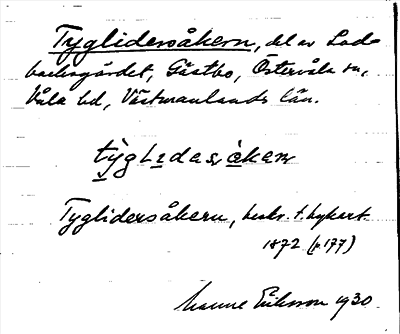 Tyglidersåkern, del av Lad-
backsgärdet, Gästbo, Östervåla sn,
Våla hd, Västmanlands län.
Tyglidersåkern, beskr. t. lagskart.
1872 (p 177)
Manne Eriksson 1930.